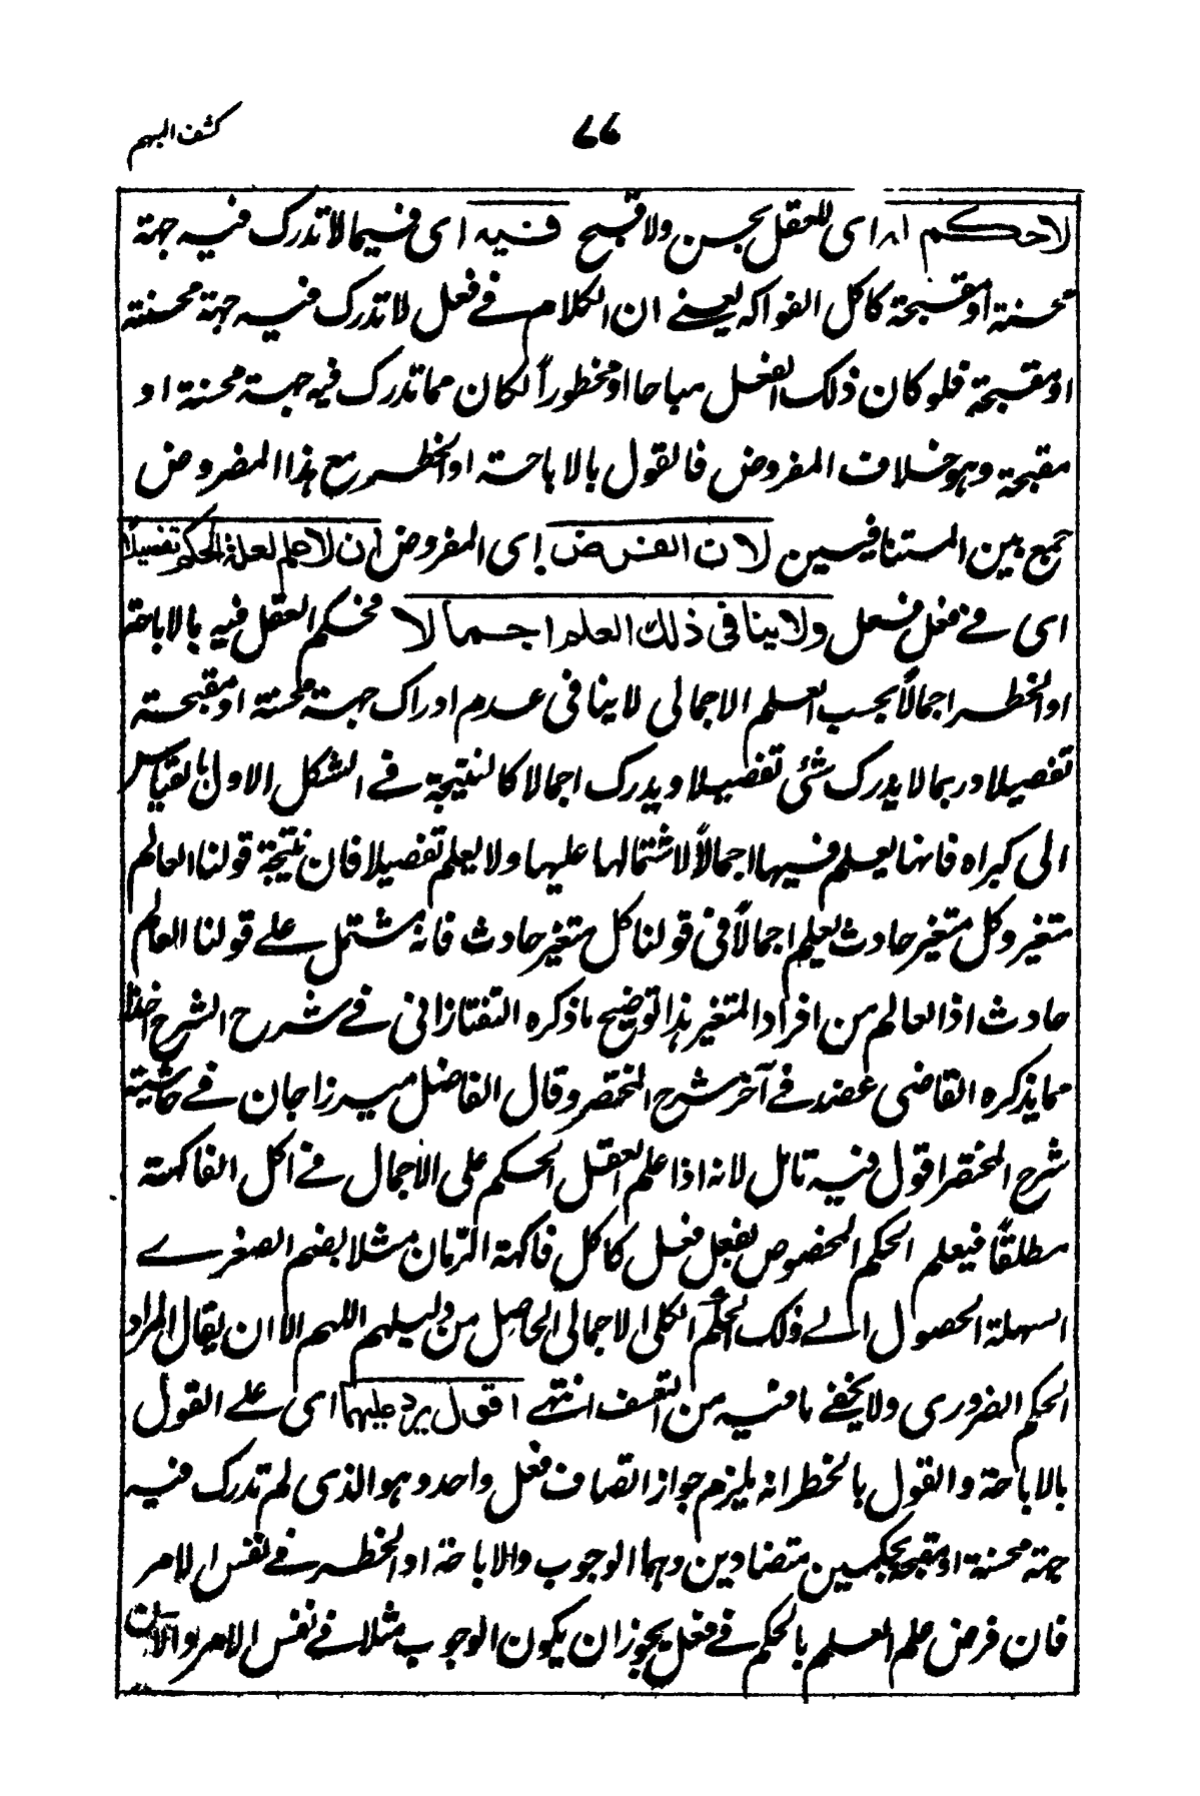 كشف المبهم
٧٧
لا حكم له اى للعقل بحسن ولا قبح فيه اى فيما لا تدرك فيه جهة
محسنة او مقبحة كاكل الفواكه يعنے ان الكلام فے فعل لا تدرك فيه جهة محسنة
او مقبحة فلو كان ذلك الفعل مباحا او محظوراً لكان مما تدرك فيه جهة محسنة او
مقبحة وهو خلاف المفروض فالقول بالاباحة او الحظر مع هذا المفروض
جمع بين المتنافيين لان الفرض اى المفروض ان لا علم لعلة الحكم تفصيلاً
اى فے فعل فعل ولا ينافى ذلك العلم اجمالا فحكم العقل فيه بالاباحة
او الحظر اجمالاً بحسب العلم الاجمالى لا ينافى عدم ادراك جهة محسنة او مقبحة
تفصيلا وربما لا يدرك شئ تفصيلا ويدرك اجمالا كالنتيجة فے الشكل الاول بالقياس
الى كبراه فانها يعلم فيها اجمالاً لاشتمالها عليها ولا يعلم تفصيلا فان نتيجة قولنا العالم
متغير وكل متغير حادث يعلم اجمالاً فى قولنا كل متغير حادث فانه مشتمل علے قولنا العالم
حادث اذ العالم من افراد المتغير هذا توضيح ما ذكره التفتازانى فے شرح الشرح اخذا
مما يذكره القاضى عضد فے آخر شرح المختصر وقال الفاضل ميرزا جان فے حاشية
شرح المختصر اقول فيه تامل لانه اذا علم العقل الحكم على الاجمال فے اكل الفاكهة
مطلقاً فيعلم الحكم المخصوص بفعل فعل كاكل فاكهة الرّمان مثلا بضم الصغرے
السهلة الحصول الے ذلك الحكم الكلى الاجمالى الحاصل من دليلهم اللهم الا ان يقال المراد
الحكم الضرورى ولا يخفے ما فيه من التعسف انتهے اقول يرد عليهما اى علے القول
بالاباحة والقول بالحظر انه يلزم جواز اتصاف فعل واحد وهو الذى لم تدرك فيه
جهة محسنة او مقبحة بحكمين متضادين وهما الوجوب والاباحة او الحظر فے نفس الامر
فان فرض عدم العلم بالحكم فے فعل يجوز ان يكون الوجوب مثلا فے نفس الامر والآن